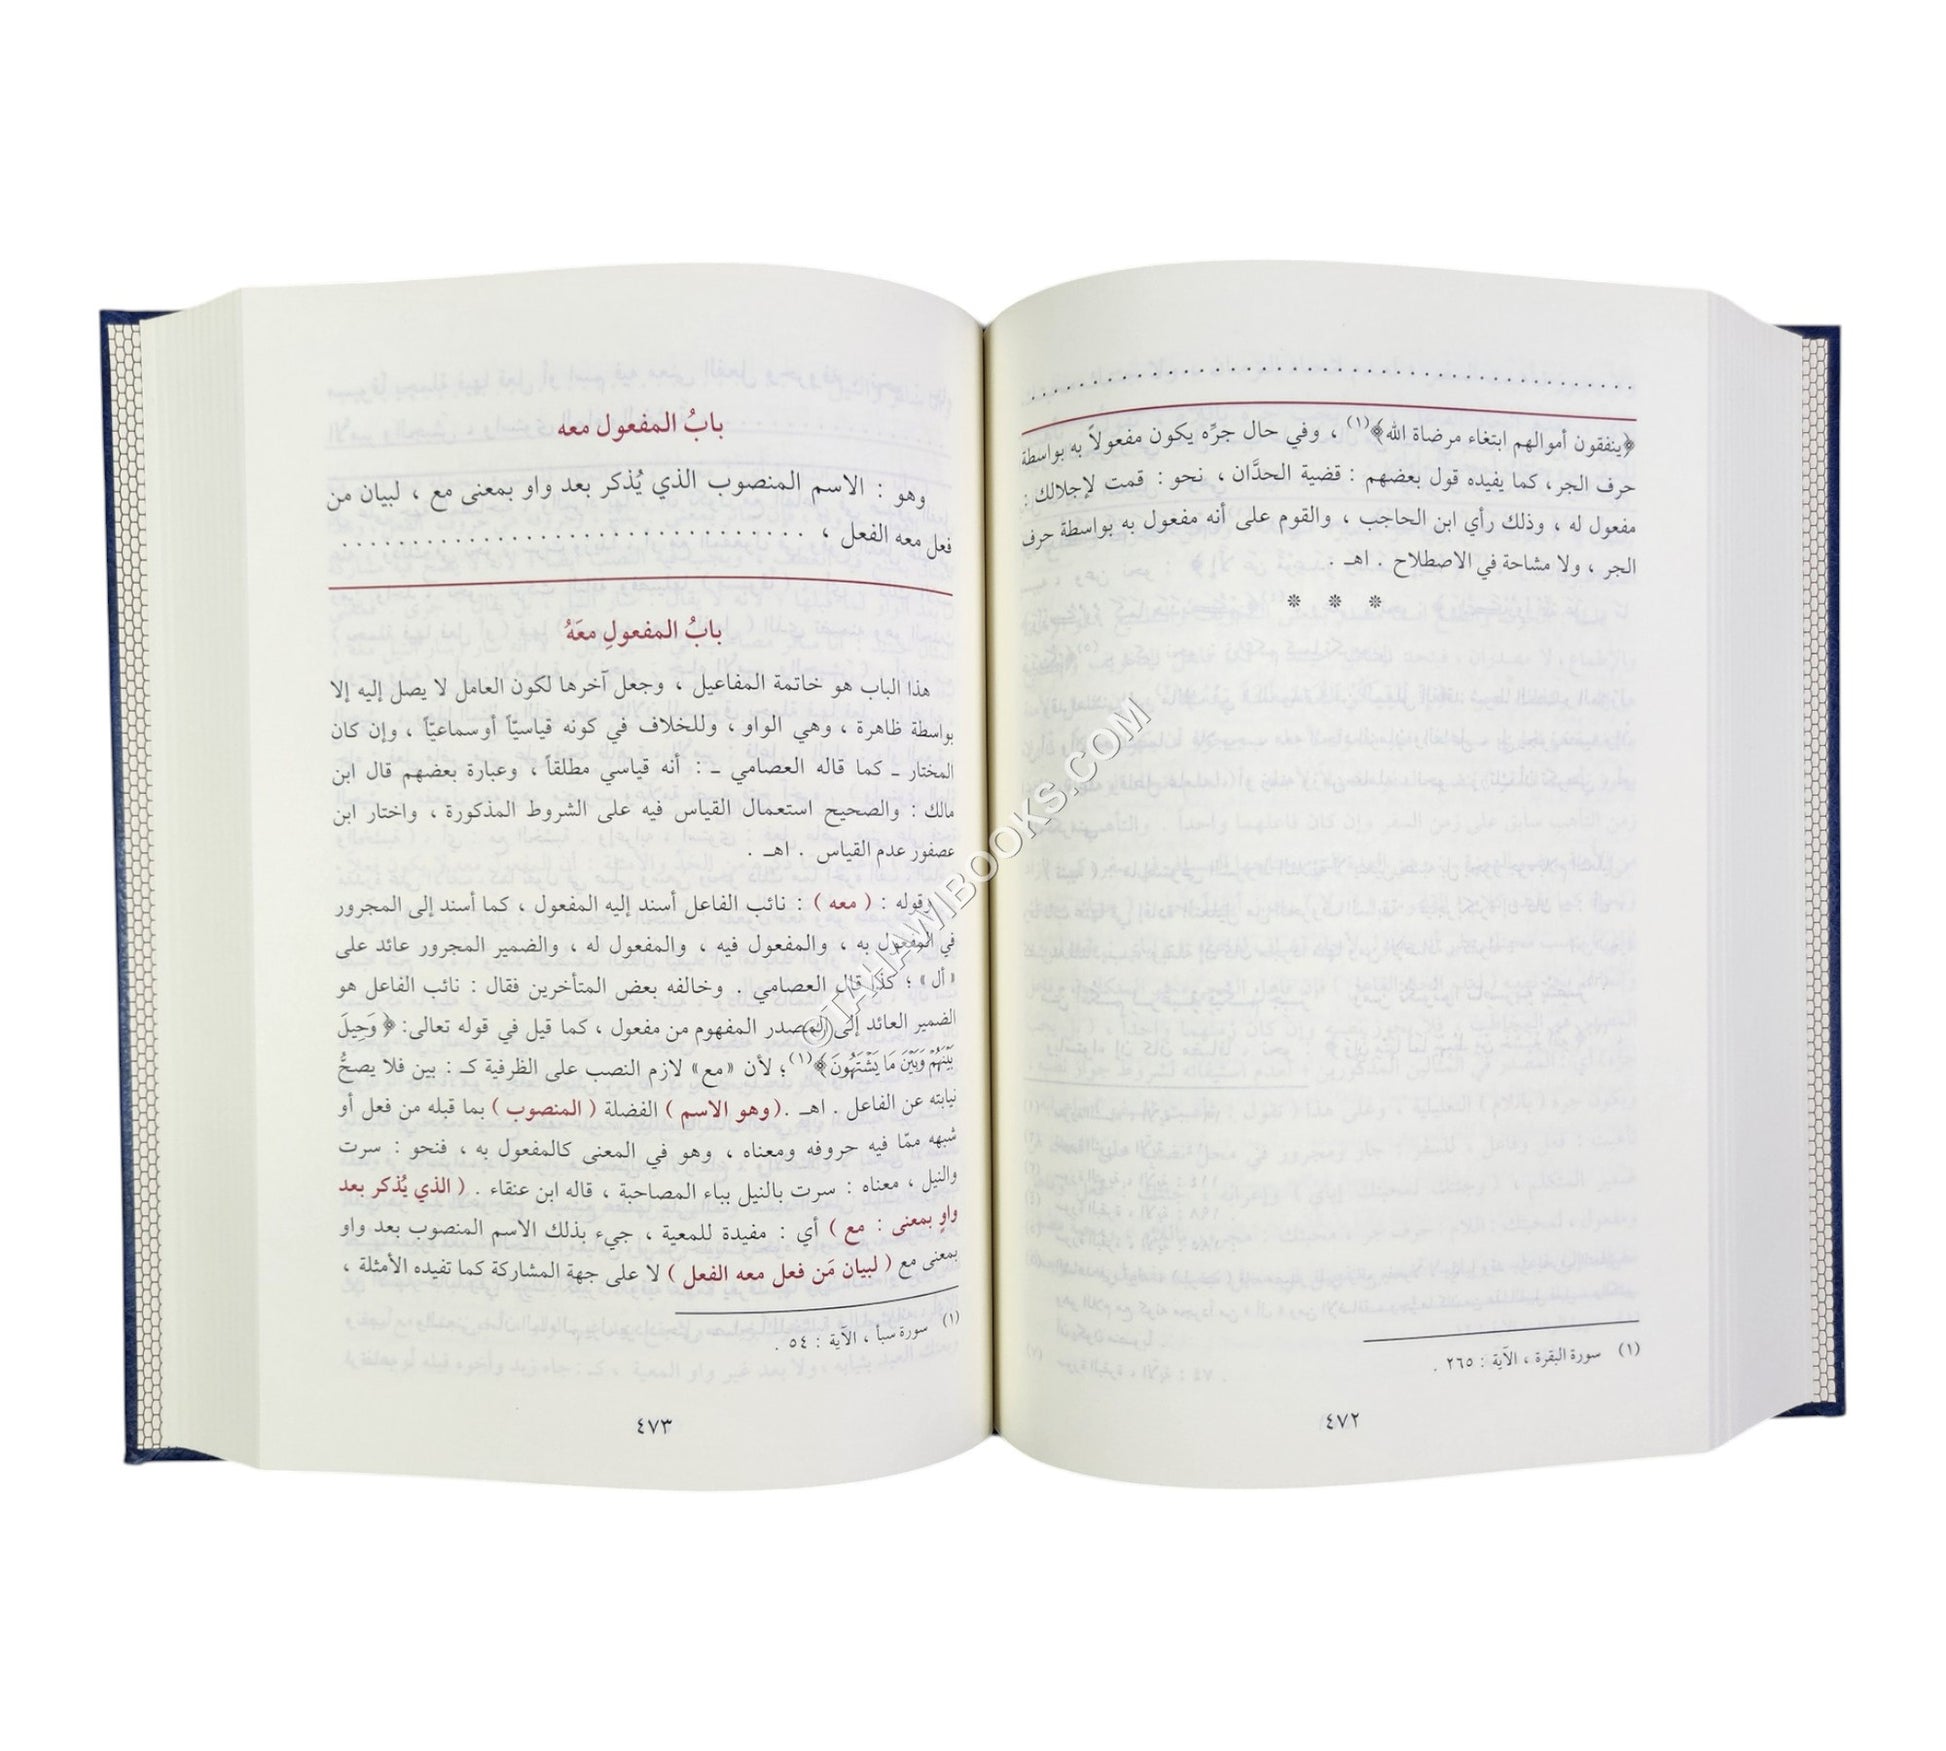 ﴿ينفقون أموالهم ابتغاء مرضاة الله﴾(١) ، وفي حال جرِّه يكون مفعولاً به بواسطة
حرف الجر ، كما يفيده قول بعضهم : قضية الحدَّان ، نحو : قمت لإجلالك :
مفعول له ، وذلك رأي ابن الحاجب ، والقوم على أنه مفعول به بواسطة حرف
الجر ، ولا مشاحة في الاصطلاح . اهـ .
* * *
(١) سورة البقرة ، الآية : ٢٦٥ .
٤٧٢
بابُ المفعول معه
وهو : الاسم المنصوب الذي يُذكر بعد واو بمعنى مع ، لبيان من
فعل معه الفعل ،
بابُ المفعولِ معَهُ
هذا الباب هو خاتمة المفاعيل ، وجعل آخرها لكون العامل لا يصل إليه إلا
بواسطة ظاهرة ، وهي الواو ، وللخلاف في كونه قياسيّاً أوسماعيّاً ، وإن كان
المختار ـ كما قاله العصامي ـ : أنه قياسي مطلقاً ، وعبارة بعضهم قال ابن
مالك : والصحيح استعمال القياس فيه على الشروط المذكورة ، واختار ابن
عصفور عدم القياس . اهـ .
وقوله : ( معه ) : نائب الفاعل أسند إليه المفعول ، كما أسند إلى المجرور
في المفعول به ، والمفعول فيه ، والمفعول له ، والضمير المجرور عائد على
«أل» ؛ كذا قال العصامي . وخالفه بعض المتأخرين فقال : نائب الفاعل هو
الضمير العائد إلى المصدر المفهوم من مفعول ، كما قيل في قوله تعالى: ﴿ وَحِيلَ
بَيْنَهُمْ وَبَيْنَ مَا يَشْتَهُونَ﴾(١) ؛ لأن «مع» لازم النصب على الظرفية كـ : بين فلا يصحُّ
نيابته عن الفاعل . اهـ .(وهو الاسم ) الفضلة ( المنصوب ) بما قبله من فعل أو
شبهه ممّا فيه حروفه ومعناه ، وهو في المعنى كالمفعول به ، فنحو : سرت
والنيل ، معناه : سرت بالنيل بباء المصاحبة ، قاله ابن عنقاء . ( الذي يُذكر بعد
واوٍ بمعنى : مع ) أي : مفيدة للمعية ، جيء بذلك الاسم المنصوب بعد واو
بمعنى مع ( لبيان مَن فعل معه الفعل ) لا على جهة المشاركة كما تفيده الأمثلة ،
(١) سورة سبأ ، الآية : ٥٤ .
٤٧٣
©TAHAWIBOOKS.COM